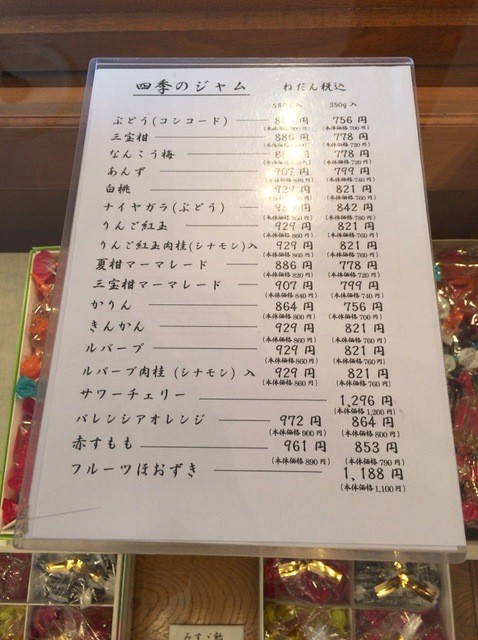 四季のジャム ねだん税込
580g入 350g入
ぶどう(コンコード) 756円
(本体価格700円)
三宝柑 886円 778円
(本体価格720円)
なんこう梅 778円
(本体価格720円)
あんず 907円 799円
(本体価格740円)
白桃 929円 821円
(本体価格760円)
ナイヤガラ(ぶどう) 842円
(本体価格780円)
りんご紅玉 929円 821円
(本体価格860円) (本体価格760円)
りんご紅玉肉桂(シナモン)入 929円 821円
(本体価格860円) (本体価格760円)
夏柑マーマレード 886円 778円
(本体価格820円) (本体価格720円)
三宝柑マーマレード 907円 799円
(本体価格840円) (本体価格740円)
かりん 864円 756円
(本体価格800円) (本体価格700円)
きんかん 929円 821円
(本体価格860円) (本体価格760円)
ルバーブ 929円 821円
(本体価格860円) (本体価格760円)
ルバーブ肉桂(シナモン)入 929円 821円
(本体価格860円) (本体価格760円)
サワーチェリー 1,296円
(本体価格1,200円)
バレンシアオレンジ 972円 864円
(本体価格900円) (本体価格800円)
赤すもも 961円 853円
(本体価格890円) (本体価格790円)
フルーツほおずき 1,188円
(本体価格1,100円)
みすゞ飴